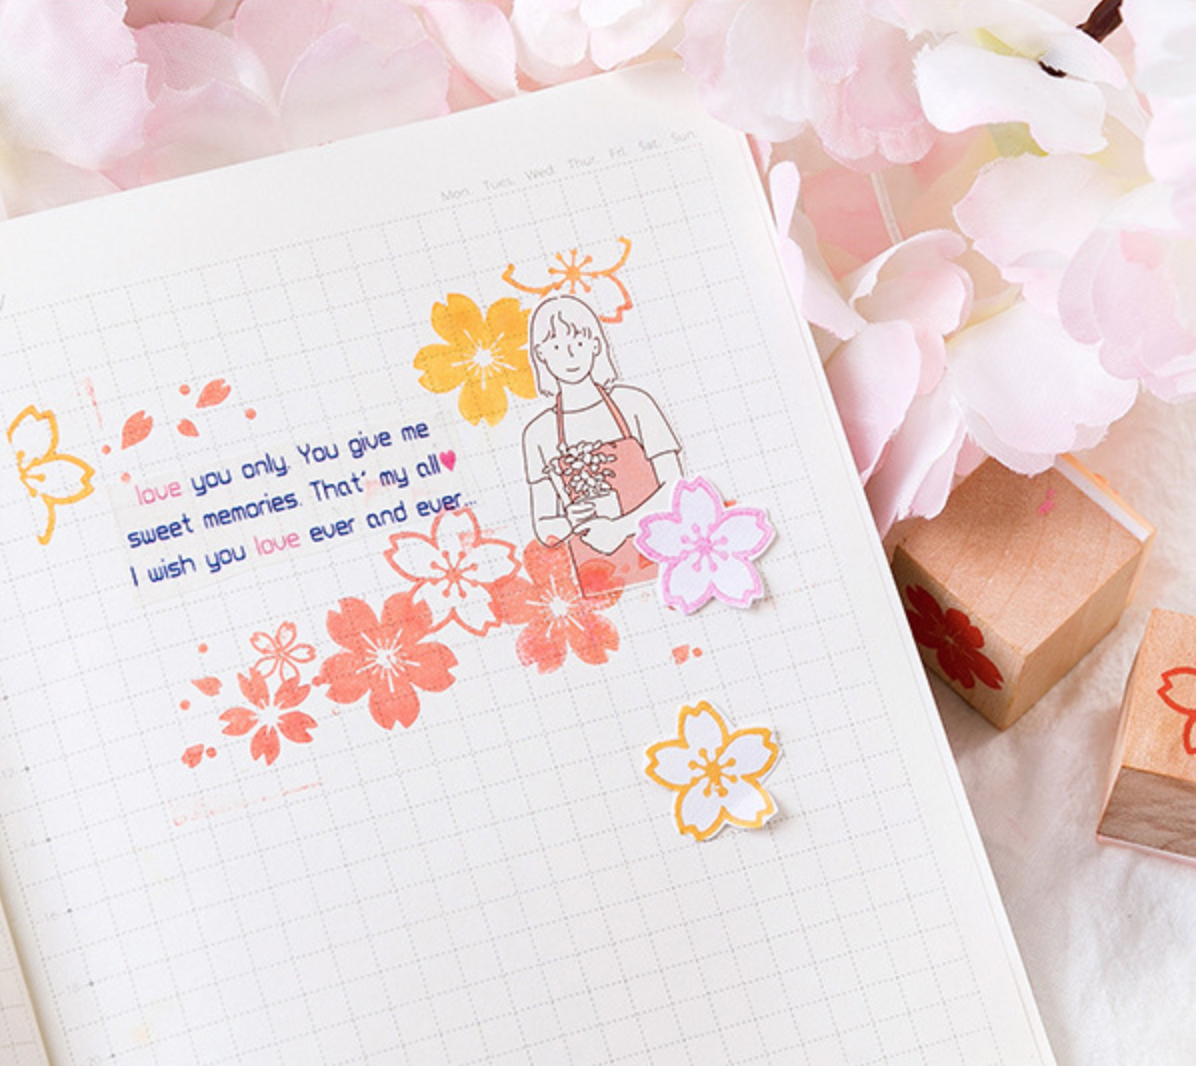 Mon. Tues. Wed. Thur. Fri. Sat. Sun.
love you only. You give me
sweet memories. That' my all♥
I wish you love ever and ever...